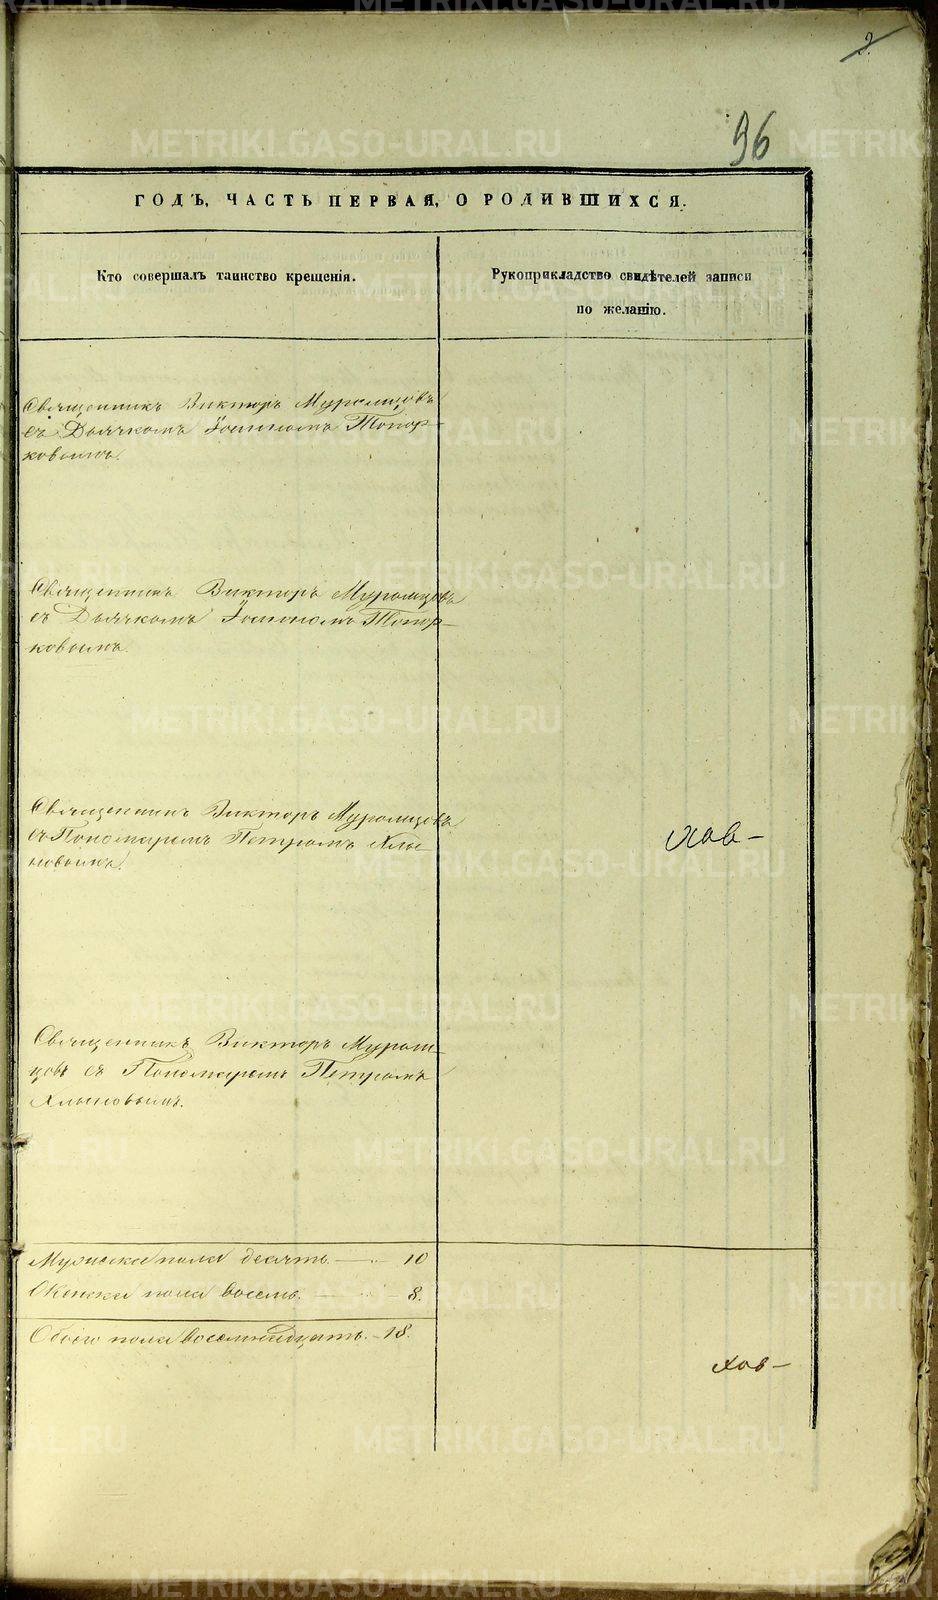 2.
96
ГОДЪ, ЧАСТЬ ПЕРВАЯ, О РОДИВШИХСЯ.
Кто совершалъ таинство крещенія.
Рукоприкладство свидѣтелей записи
по желанію.
Священникъ Викторъ Муромцовъ
съ Дьячкомъ Іоанномъ Топор-
ковымъ.
Священникъ Викторъ Муромцовъ
съ Дьячкомъ Іоанномъ Топор-
ковымъ.
Священникъ Викторъ Муромцовъ
съ Пономаремъ Петромъ Хлы-
новымъ.
Священникъ Викторъ Муром-
цовъ съ Пономаремъ Петромъ
Хлыновымъ.
Мужеска пола десять. — 10
Женска пола восемь. — 8.
Обоего пола восемнадцать. — 18.
METRIKI.GASO-URAL.RU